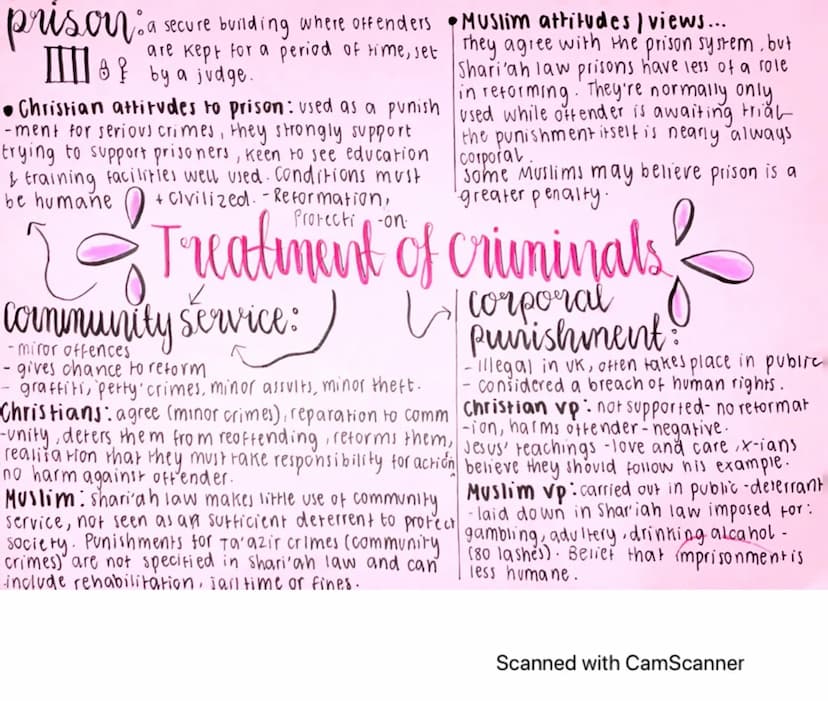 prison: a secure building where offenders
are kept for a period of time, set
by a judge.
• Christian attitudes to prison: used as a punish
-ment for serious crimes, they strongly support
trying to support prisoners, keen to see education
& training facilities well used. Conditions must
be humane + civilized. - Reformation,
Protecti -on
• Muslim attitudes / views...
They agree with the prison system, but
Shari'ah law prisons have less of a role
in reforming. They're normally only
used while offender is awaiting trial
the punishment itself is nearly always
corporal.
Some Muslims may believe prison is a
greater penalty.
Treatment of criminals
community service:
- miror offences
- gives chance to reform
- graffiti, 'petty' crimes, minor assults, minor theft.
Christians: agree (minor crimes), reparation to comm
-unity, deters them from reoffending, reforms them,
realisation that they must take responsibility for action
no harm against offender.
Muslim: shari'ah law makes little use of community
service, not seen as an sufficient deterrent to protect
society. Punishments for Ta'azir crimes (community
crimes) are not specified in Shari'ah law and can
include rehabilitation, jail time or fines.
corporal
punishment:
- illegal in UK, often takes place in public
- considered a breach of human rights.
Christian vp: not supported - no reformat
-ion, harms offender - negative.
Jesus' teachings - love and care, x-ians
believe they should follow his example.
Muslim vp: carried out in public - deterrant
- laid down in Shar'iah law imposed for:
gambling, adultery, drinking alcohol -
(80 lashes). Belief that imprisonment is
less humane.
Scanned with CamScanner